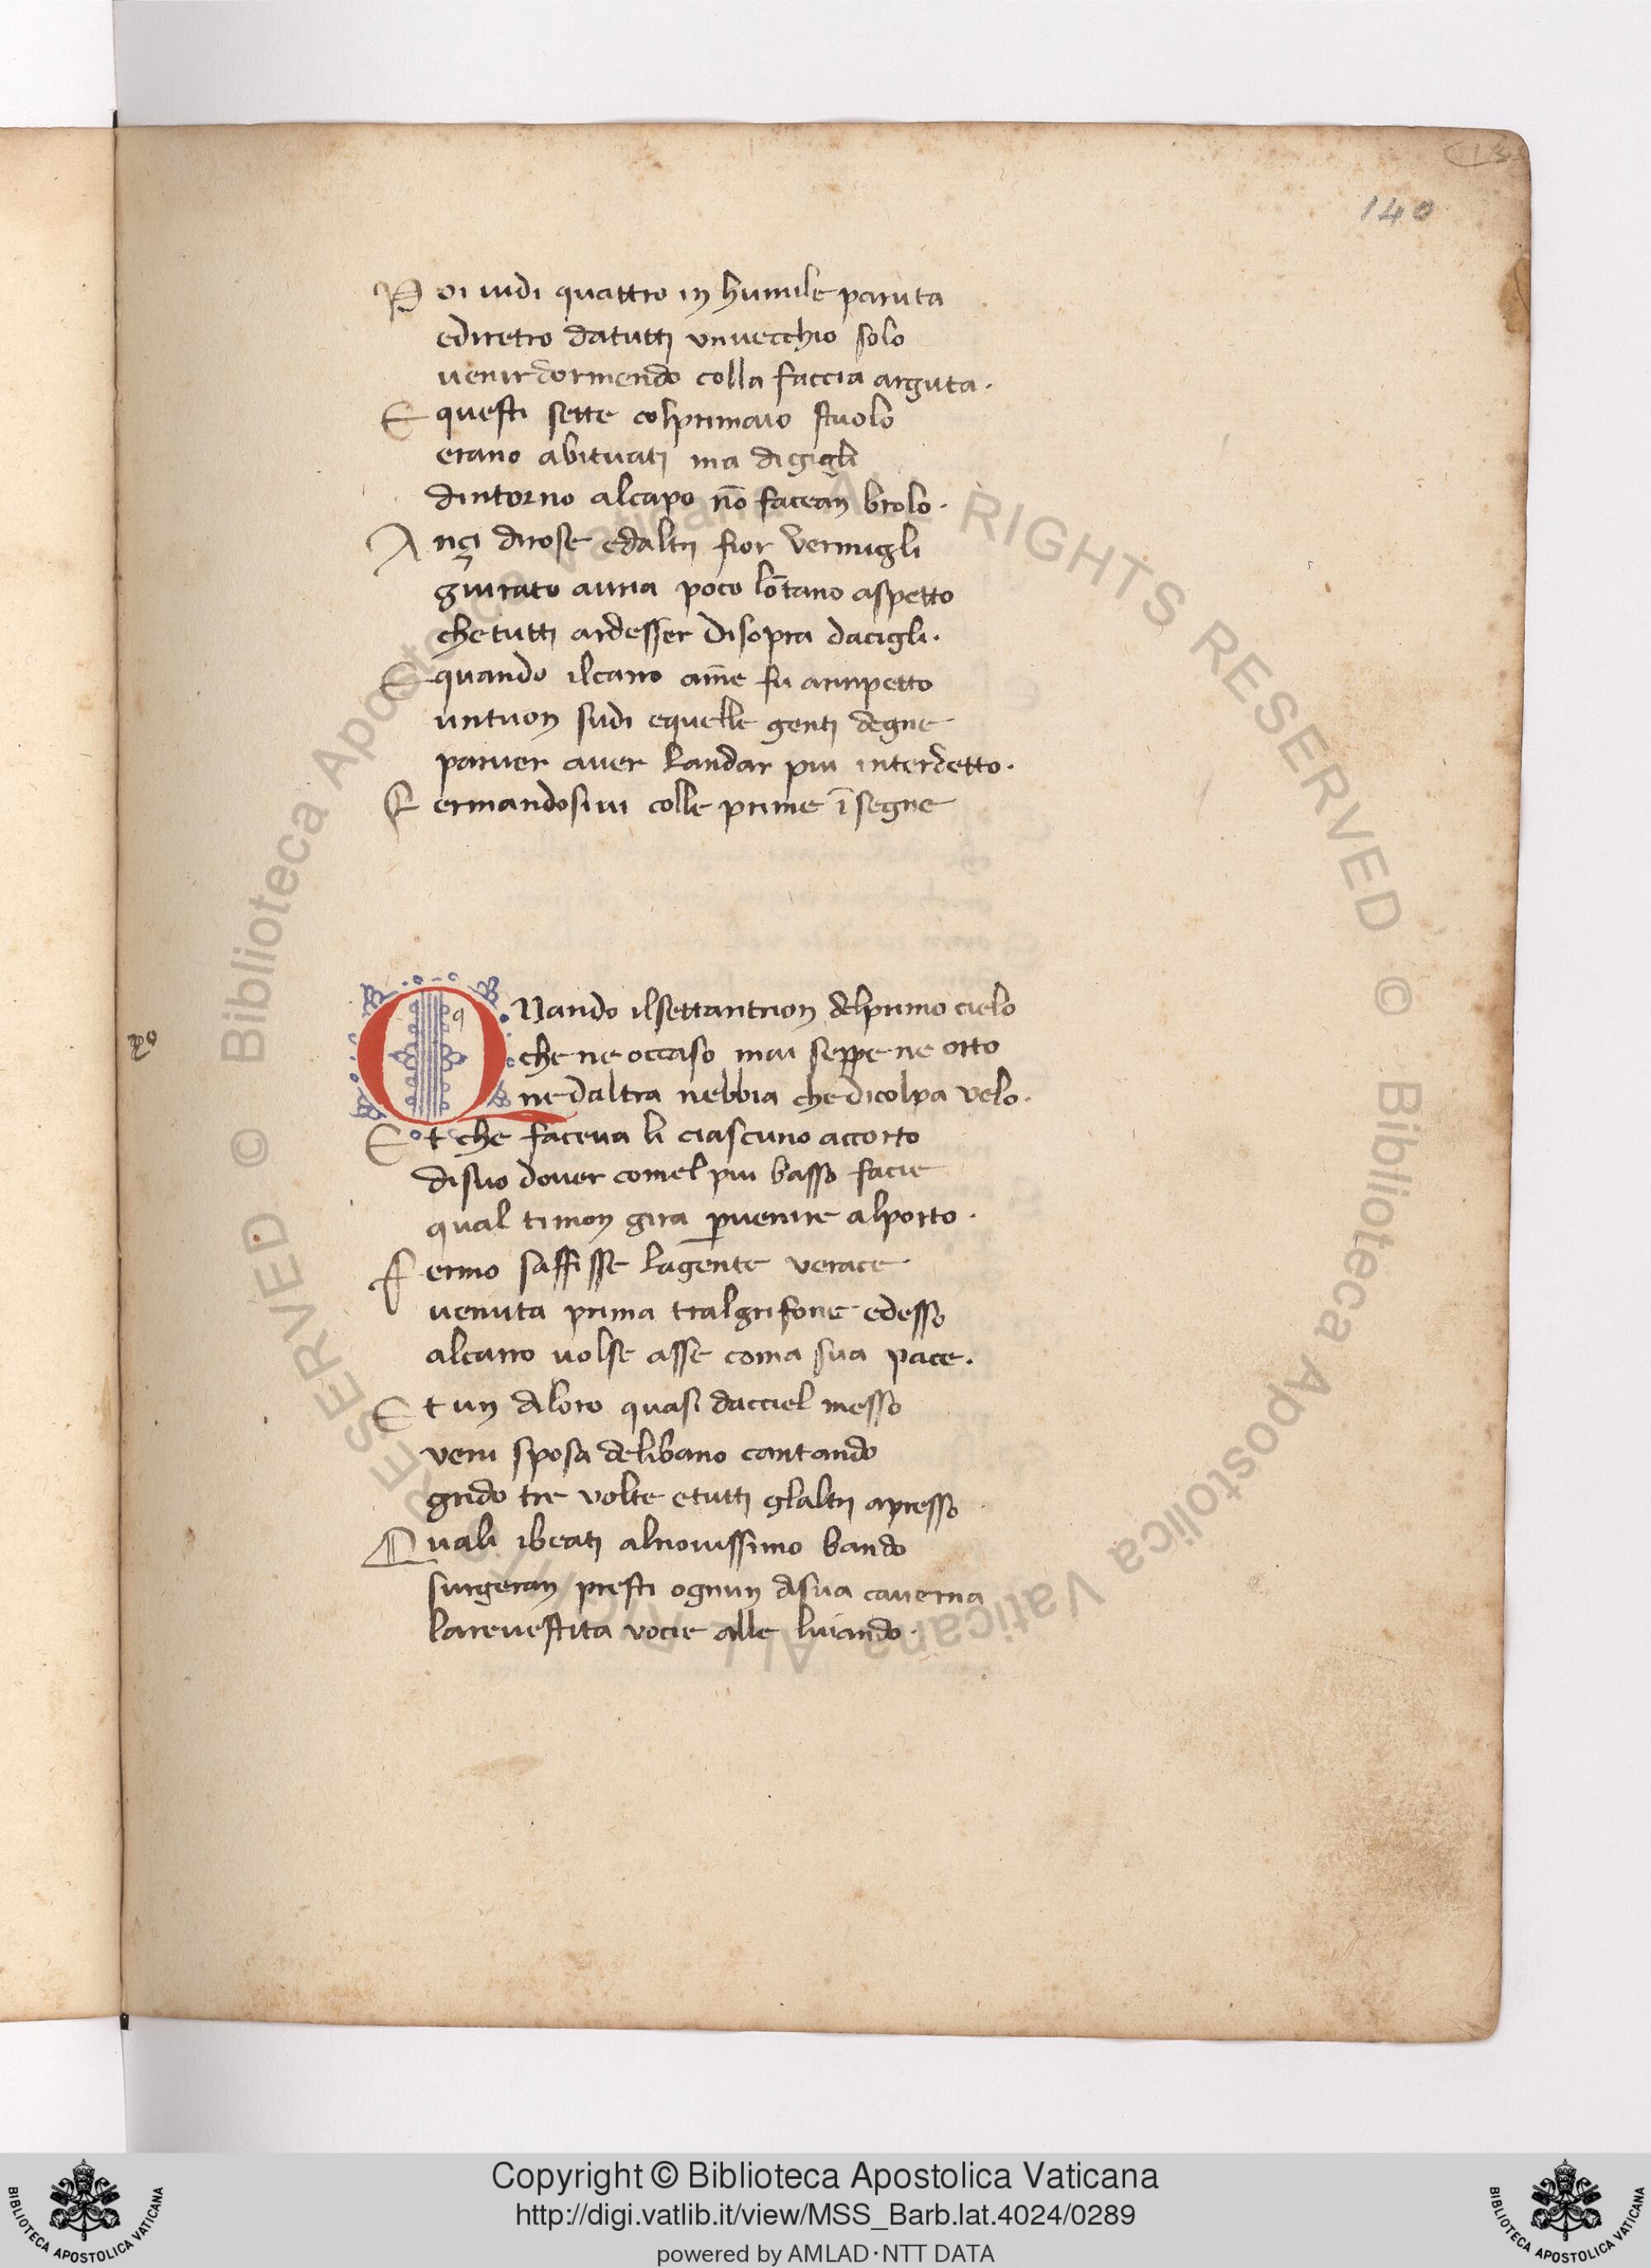 140
P oi uidi quattro in humile paruta
ediretro datutti vnuecchio solo
uenirdormendo colla faccia arguta.
E questi sette colprimaio stuolo
erano abituati ma digigli
dintorno alcapo nō facean brolo.
A nçi dirose edaltri fior vermigli
giurato auria poco lōtano aspetto
chetutti ardesser disopra dacigli.
E quando ilcarro am̄e fu arimpetto
untuon sudi equelle genti degne
parver auer landar piu interdetto.
F ermandosiui colle prime īsegne
QVando ilsettantrion delprimo cielo
che ne occaso mai seppe ne orto
nedaltra nebbia chedicolpa velo.
E t che faceua li ciascuno accorto
disuo douer comel piu basso facie
qual timon gira ꝑuenire alporto.
F ermo saffisse lagente verace
uenuta prima tralgrifone edesso
alcarro uolse asse coma sua pace.
E t un diloro quasi dacciel messo
veni sposa delibano cantando
grido tre volte etutti glaltri apresso
Q uali ibeati alnouissimo bando
surgeran presti ognun disua cauerna
lareuestita vocie alleluiando.
© Biblioteca Apostolica Vaticana ALL RIGHTS RESERVED © Biblioteca Apostolica Vaticana ALL RIGHTS RESERVED
Copyright © Biblioteca Apostolica Vaticana
http://digi.vatlib.it/view/MSS_Barb.lat.4024/0289
powered by AMLAD·NTT DATA
BIBLIOTECA APOSTOLICA VATICANA
BIBLIOTECA APOSTOLICA VATICANA